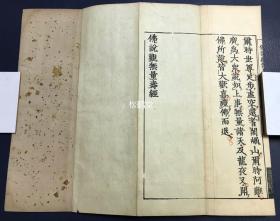 爾時世尊足步虛空還耆闍崛山爾時阿難
廣爲大衆說如上事無量諸天及龍夜叉聞
佛所說皆大歡喜禮佛而退
佛說觀無量壽經
松雲堂